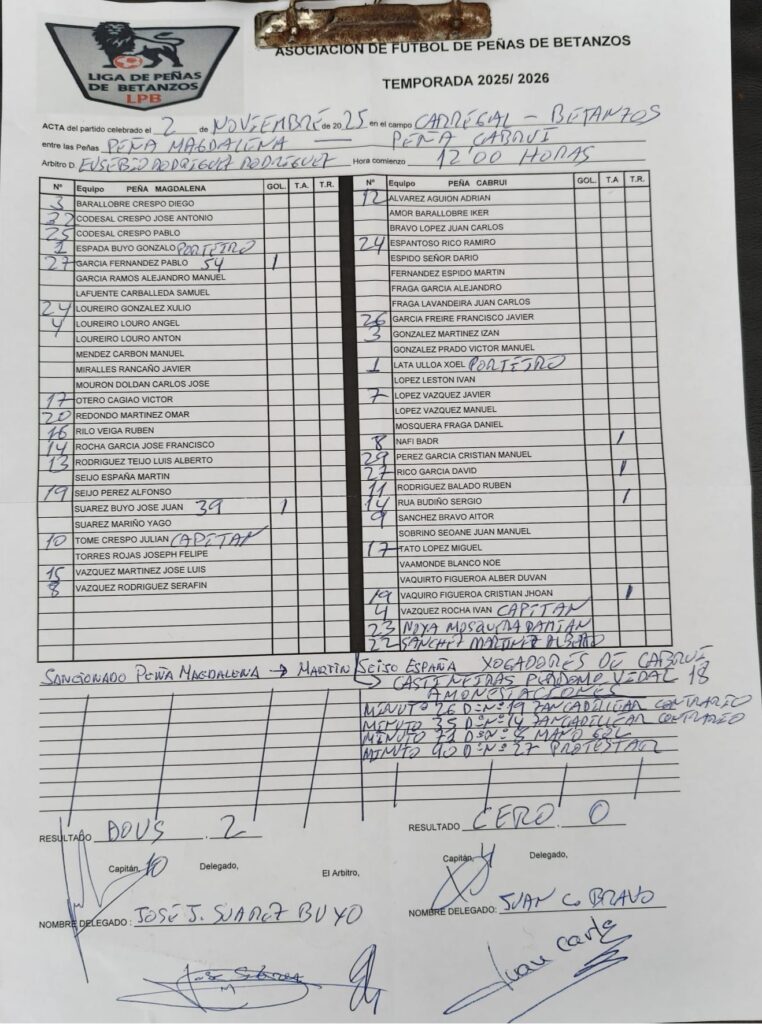 LIGA DE PEÑAS
DE BETANZOS
LPB
ASOCIACION DE FUTBOL DE PEÑAS DE BETANZOS
TEMPORADA 2025/ 2026
ACTA del partido celebrado el 2 de NOVIEMBRE de 2025 en el campo CARREGAL - BETANZOS
entre las Peñas PEÑA MAGDALENA — PEÑA CABRUI
Arbitro D. EUSEBIO RODRIGUEZ RODRIGUEZ Hora comienzo 12'00 HORAS
Nº Equipo PEÑA MAGDALENA GOL. T.A. T.R.
3 BARALLOBRE CRESPO DIEGO
22 CODESAL CRESPO JOSE ANTONIO
25 CODESAL CRESPO PABLO
1 ESPADA BUYO GONZALO PORTEIRO
27 GARCIA FERNANDEZ PABLO 54 1
GARCIA RAMOS ALEJANDRO MANUEL
LAFUENTE CARBALLEDA SAMUEL
24 LOUREIRO GONZALEZ XULIO
4 LOUREIRO LOURO ANGEL
LOUREIRO LOURO ANTON
MENDEZ CARBON MANUEL
MIRALLES RANCAÑO JAVIER
MOURON DOLDAN CARLOS JOSE
17 OTERO CAGIAO VICTOR
20 REDONDO MARTINEZ OMAR
16 RILO VEIGA RUBEN
14 ROCHA GARCIA JOSE FRANCISCO
13 RODRIGUEZ TEIJO LUIS ALBERTO
SEIJO ESPAÑA MARTIN
19 SEIJO PEREZ ALFONSO
SUAREZ BUYO JOSE JUAN 39 1
SUAREZ MARIÑO YAGO
10 TOME CRESPO JULIAN CAPITAN
TORRES ROJAS JOSEPH FELIPE
15 VAZQUEZ MARTINEZ JOSE LUIS
8 VAZQUEZ RODRIGUEZ SERAFIN
Nº Equipo PEÑA CABRUI GOL. T.A T.R.
12 ALVAREZ AGUION ADRIAN
AMOR BARALLOBRE IKER
BRAVO LOPEZ JUAN CARLOS
24 ESPANTOSO RICO RAMIRO
ESPIDO SEÑOR DARIO
FERNANDEZ ESPIDO MARTIN
FRAGA GARCIA ALEJANDRO
FRAGA LAVANDEIRA JUAN CARLOS
26 GARCIA FREIRE FRANCISCO JAVIER
3 GONZALEZ MARTINEZ IZAN
GONZALEZ PRADO VICTOR MANUEL
1 LATA ULLOA XOEL PORTEIRO
LOPEZ LESTON IVAN
7 LOPEZ VAZQUEZ JAVIER
LOPEZ VAZQUEZ MANUEL
MOSQUERA FRAGA DANIEL
8 NAFI BADR 1
29 PEREZ GARCIA CRISTIAN MANUEL
27 RICO GARCIA DAVID 1
11 RODRIGUEZ BALADO RUBEN
14 RUA BUDIÑO SERGIO 1
9 SANCHEZ BRAVO AITOR
SOBRINO SEOANE JUAN MANUEL
17 TATO LOPEZ MIGUEL
VAAMONDE BLANCO NOE
VAQUIRTO FIGUEROA ALBER DUVAN
19 VAQUIRO FIGUEROA CRISTIAN JHOAN 1
4 VAZQUEZ ROCHA IVAN CAPITAN
23 NOYA MOSQUERA DAMIAN
22 SANCHEZ MARTINEZ ALBERTO
SANCIONADO PEÑA MAGDALENA → MARTIN SEIJO ESPAÑA XOGADORES DE CABRUI
→ CASTIÑEIRAS PERDOMO VIDAL 18
AMONESTACIONES
MINUTO 26 D. Nº 19 ZANCADILLEAR CONTRARIO
MINUTO 35 D. Nº 14 ZANCADILLEAR CONTRARIO
MINUTO 72 D. Nº 8 MANO
MINUTO 90 D. Nº 27 PROTESTAR
RESULTADO DOUS . 2
RESULTADO CERO . 0
Capitán, 10 Delegado, El Arbitro,
Capitán, 4 Delegado,
NOMBRE DELEGADO : JOSÉ J. SUAREZ BUYO
NOMBRE DELEGADO: JUAN C. BRAVO
Juan Carlo